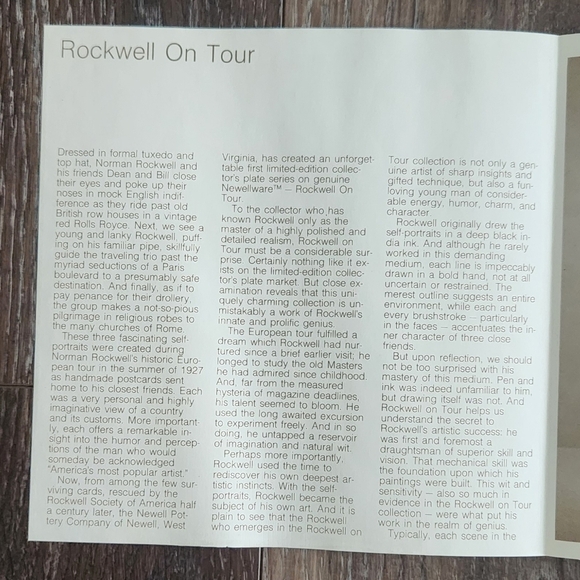 Rockwell On Tour
Dressed in formal tuxedo and
top hat, Norman Rockwell and
his friends Dean and Bill close
their eyes and poke up their
noses in mock English indif-
ference as they ride past old
British row houses in a vintage
red Rolls Royce. Next, we see a
young and lanky Rockwell, puff-
ing on his familiar pipe, skillfully
guide the traveling trio past the
myriad seductions of a Paris
boulevard to a presumably safe
destination. And finally, as if to
pay penance for their drollery,
the group makes a not-so-pious
pilgrimage in religious robes to
the many churches of Rome
These three fascinating self-
portraits were created during
Norman Rockwell's historic Euro-
pean tour in the summer of 1927
as handmade postcards sent
home to his closest friends. Each
was a very personal and highly
imaginative view of a country
and its customs. More important-
ly, each offers a remarkable in-
sight into the humor and percep-
tions of the man who would
someday be acknowledged
"America's most popular artist."
Now, from among the few sur-
viving cards, rescued by the
Rockwell Society of America half
a century later, the Newell Pot-
tery Company of Newell, West
Virginia, has created an unforget-
table first limited-edition collec-
tor's plate series on genuine
Newellware™ – Rockwell On
Tour
To the collector who has
known Rockwell only as the
master of a highly polished and
detailed realism, Rockwell on
Tour must be a considerable sur-
prise. Certainly nothing like it ex-
ists on the limited-edition collec-
tor's plate market. But close ex-
amination reveals that this uni-
quely charming collection is un-
mistakably a work of Rockwell's
innate and prolific genius.
The European tour fulfilled a
dream which Rockwell had nur-
tured since a brief earlier visit; he
longed to study the old Masters
he had admired since childhood
And, far from the measured
hysteria of magazine deadlines,
his talent seemed to bloom. He
used the long awaited excursion
to experiment freely. And in so
doing, he untapped a reservoir
of imagination and natural wit.
Perhaps more importantly,
Rockwell used the time to
rediscover his own deepest ar-
tistic instincts. With the self-
portraits, Rockwell became the
subject of his own art. And it is
plain to see that the Rockwell
who emerges in the Rockwell on
Tour collection is not only a gen-
uine artist of sharp insights and
gifted technique, but also a fun-
loving young man of consider-
able energy, humor, charm, and
character.
Rockwell originally drew the
self-portraits in a deep black in-
dia ink. And although he rarely
worked in this demanding
medium, each line is impeccably
drawn in a bold hand, not at all
uncertain or restrained. The
merest outline suggests an entire
environment, while each and
every brushstroke – particularly
in the faces – accentuates the in-
ner character of three close
friends.
But upon reflection, we should
not be too surprised with his
mastery of this medium. Pen and
ink was indeed unfamiliar to him,
but drawing itself was not. And
Rockwell on Tour helps us
understand the secret to
Rockwell's artistic success: he
was first and foremost a
draughtsman of superior skill and
vision. That mechanical skill was
the foundation upon which his
paintings were built. This wit and
sensitivity – also so much in
evidence in the Rockwell on Tour
collection – were what put his
work in the realm of genius.
Typically, each scene in the